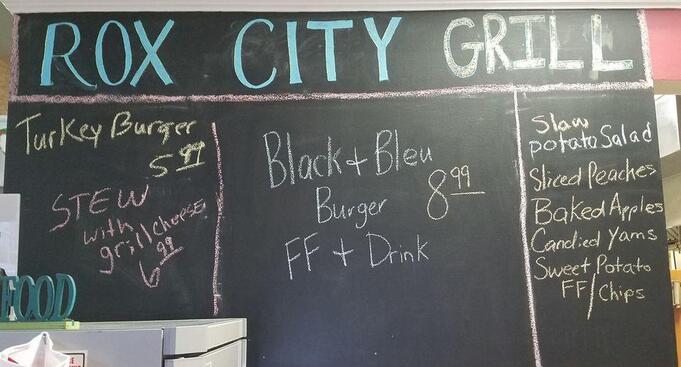 ROX CITY GRILL
Turkey Burger
5 99
STEW
with
grill cheese
6 99
Black + Bleu
Burger 8 99
FF + Drink
Slaw
potato Salad
Sliced Peaches
Baked Apples
Candied Yams
Sweet Potato
FF/Chips
FOOD